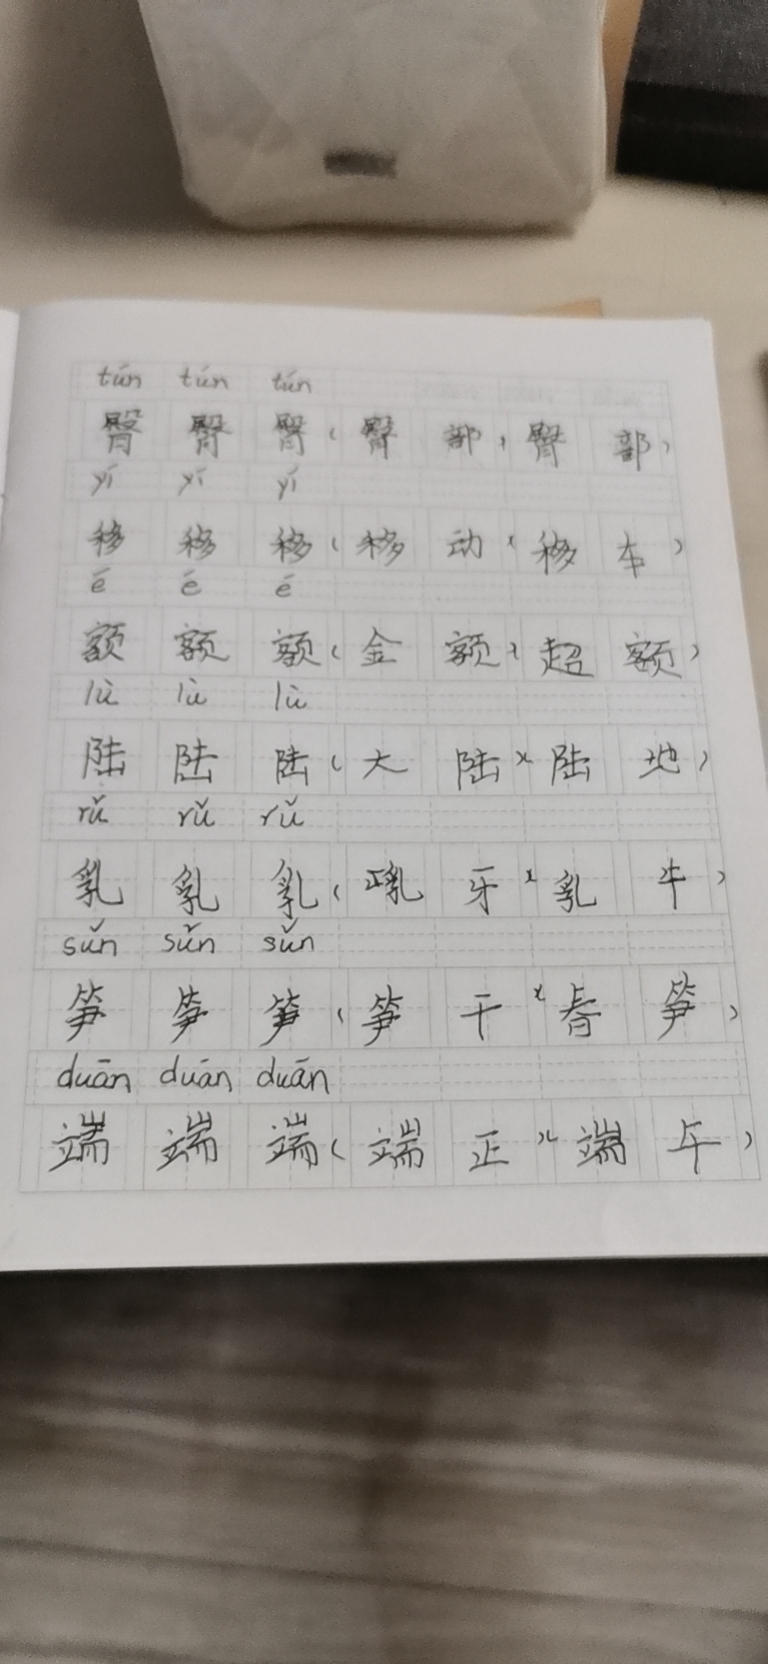 tún tún tún
臀 臀 臀 ( 臀 部 ) 臀 部 )
yí yí yí
移 移 移 ( 移 动 ( 移 车 )
é é é
额 额 额 ( 金 额 )( 超 额 )
lù lù lù
陆 陆 陆 ( 大 陆 )( 陆 地 )
rǔ rǔ rǔ
乳 乳 乳 ( 乳 牙 )( 乳 牛 )
sǔn sǔn sǔn
笋 笋 笋 ( 笋 干 )( 春 笋 )
duān duān duān
端 端 端 ( 端 正 )( 端 午 )